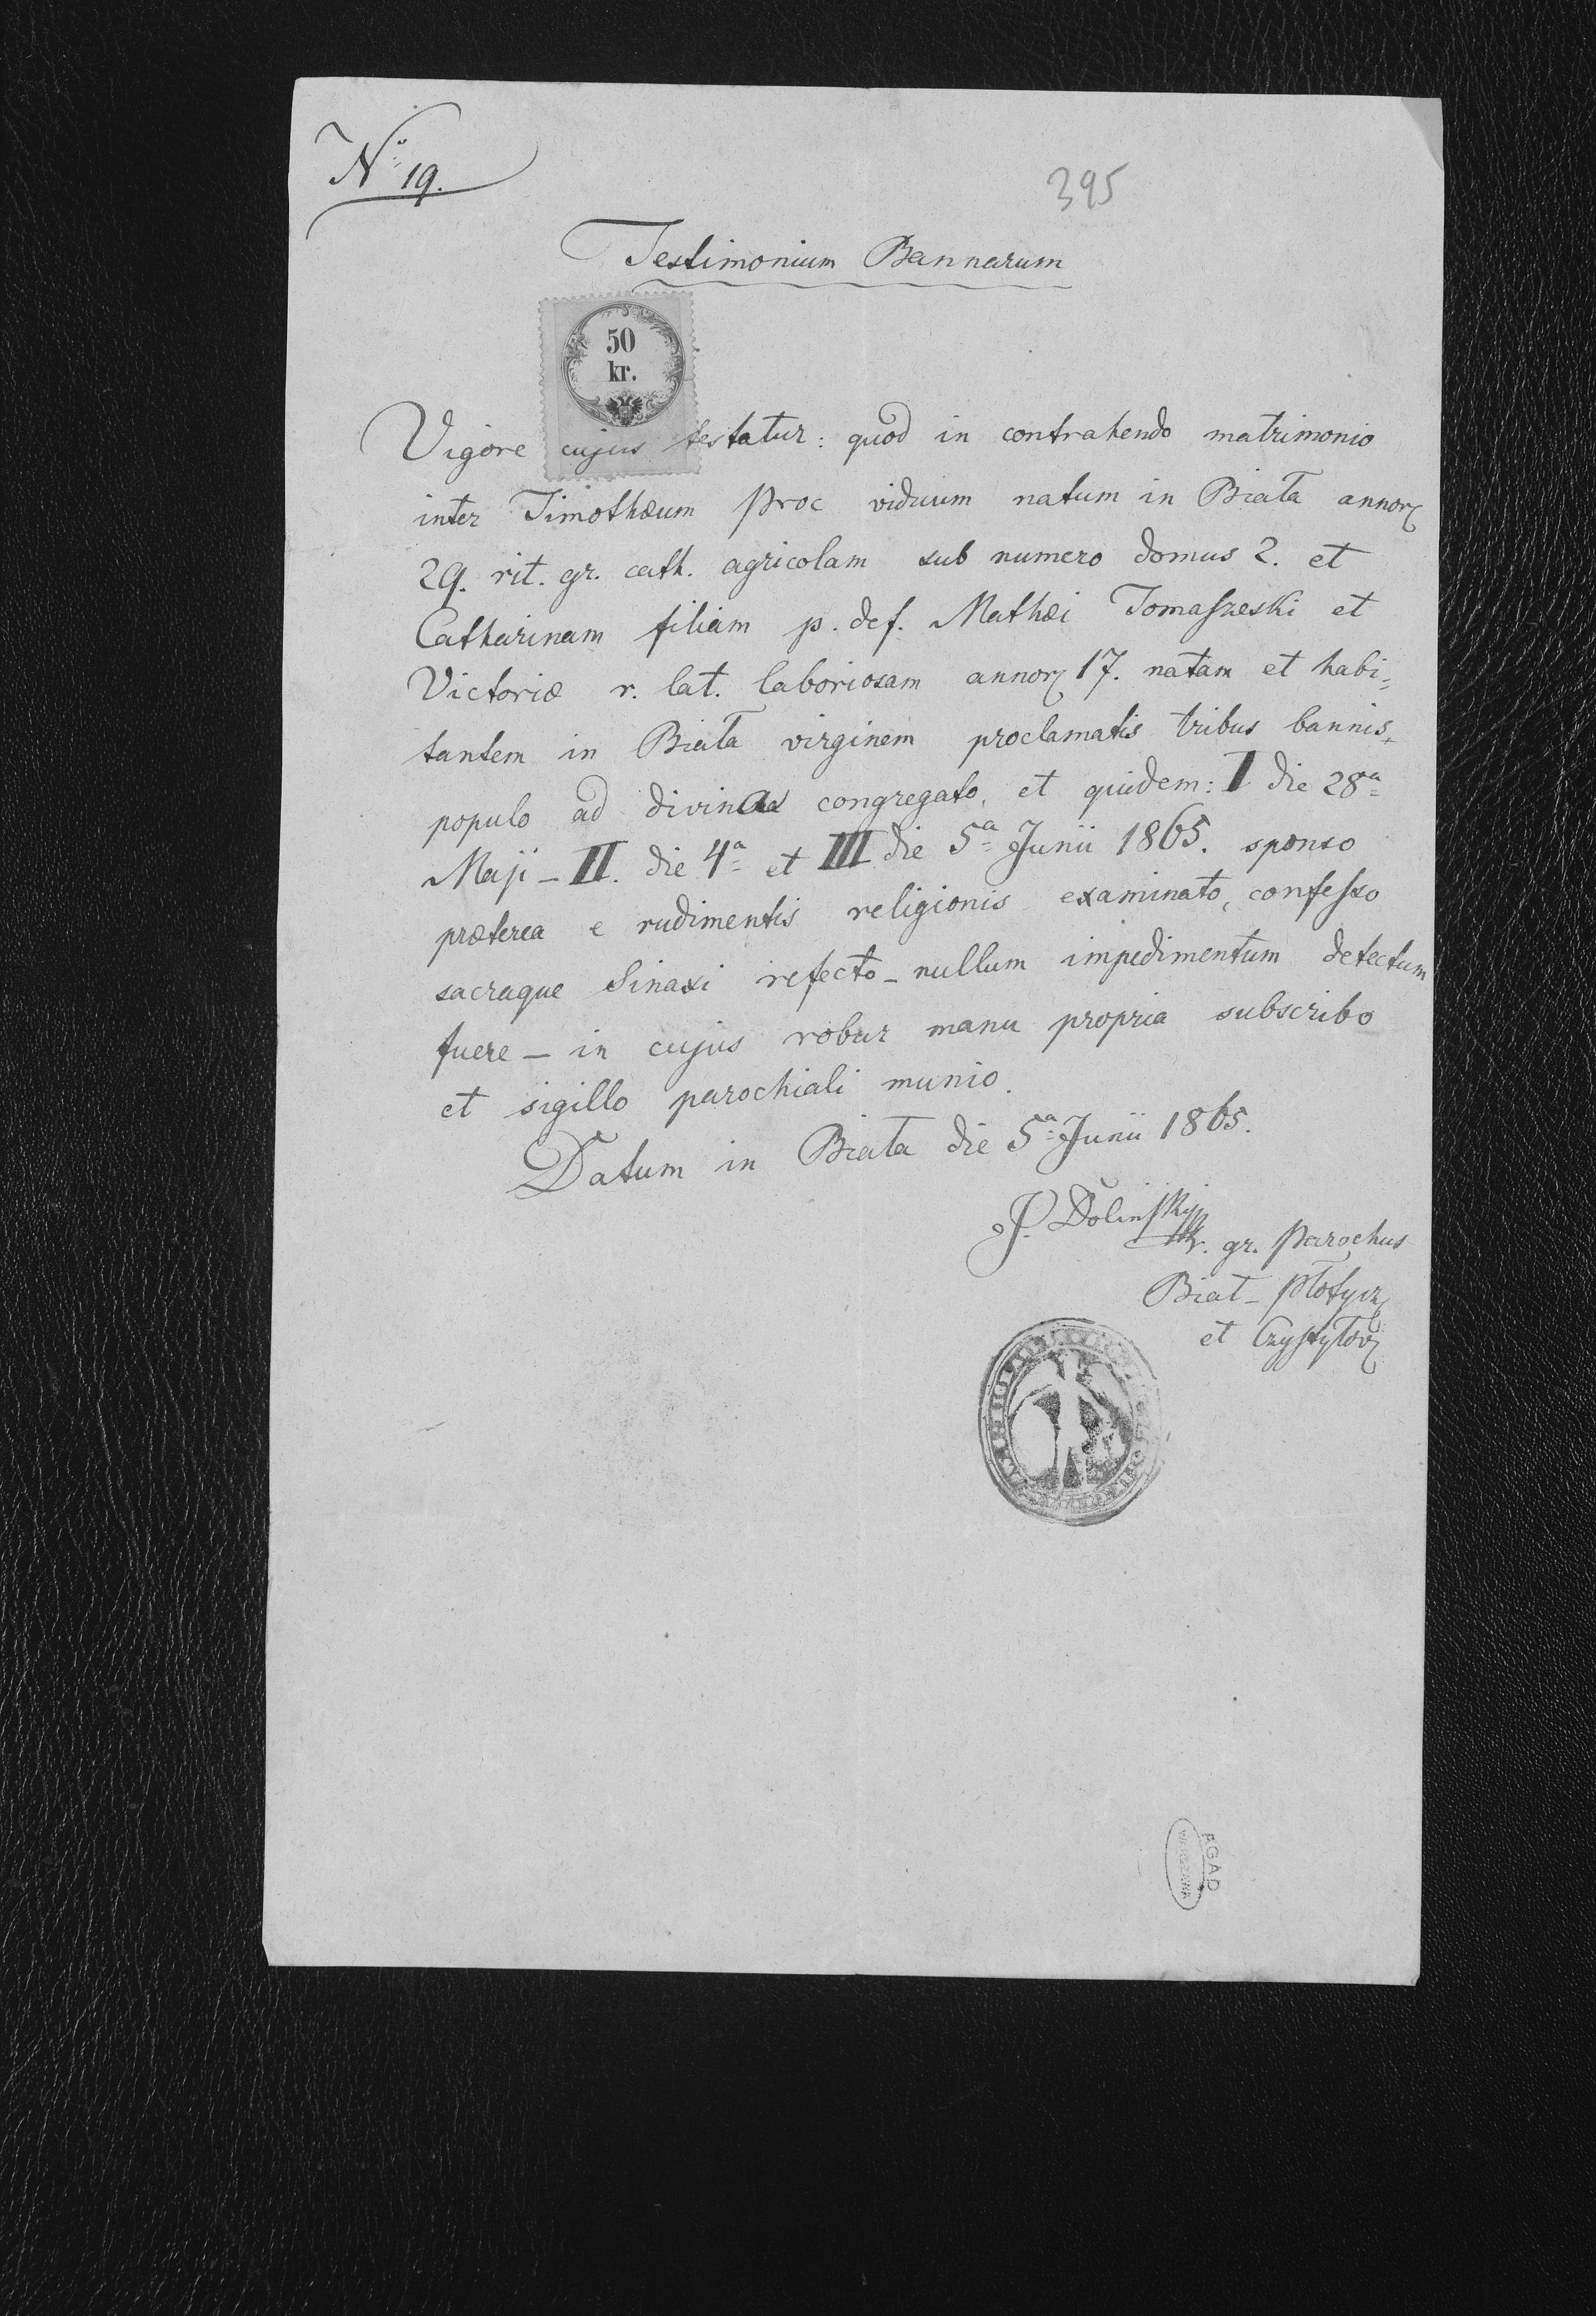 No 19.
395
Testimonium Bannarum
50
kr.
Vigore cujus testatur: quod in contrahendo matrimonio
inter Timothæum Proc viduum natum in Biała annorz
29. rit. gr. cath. agricolam sub numero domus 2. et
Catharinam filiam p. def. Mathæi Tomaszeski et
Victoriæ r. lat. laboriosam annorz 17. natam et habi=
tantem in Biała virginem proclamatis tribus bannis,
populo ad divina congregato, et quidem: I die 28a
Maji - II. die 4a et III die 5a Junii 1865. sponso
præterea e rudimentis religionis examinato, confesso
sacraque Sinaxi refecto - nullum impedimentum detectum
fuere - in cujus robur manu propria subscribo
et sigillo parochiali munio.
Datum in Biała die 5a Junii 1865.
P. Dolinskyj
r. gr. Parochus
Biał - Płotycz
et Czystyłov
AGAD
WARSZAWA